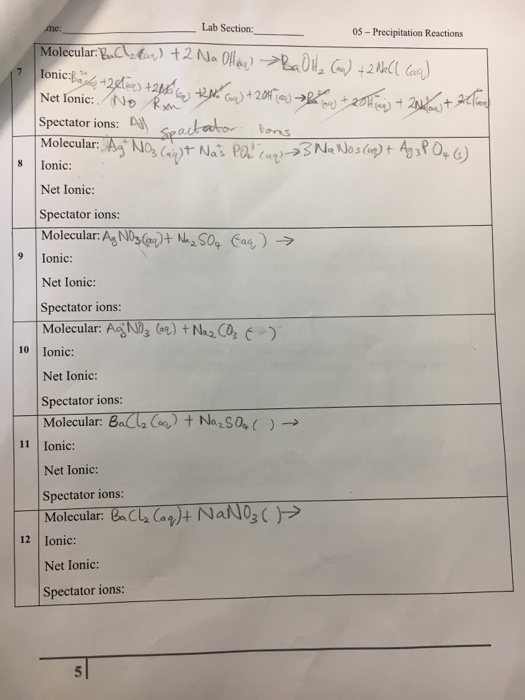 me: Lab Section: 05 – Precipitation Reactions
Molecular: BaCl₂(aq) + 2 NaOH(aq) → BaOH₂ (aq) + 2 NaCl (aq)
7 Ionic: Ba²⁺(aq) + 2Cl⁻(aq) + 2Na⁺(aq) + 2OH⁻(aq) →
Net Ionic: No Rxn
Spectator ions: All Spactator Ions
Molecular: Ag⁺NO₃ (aq) + Na₃ PO₄ (aq) → 3 NaNO₃(aq) + Ag₃PO₄ (s)
8 Ionic:
Net Ionic:
Spectator ions:
Molecular: AgNO₃(aq) + Na₂SO₄ (aq) →
9 Ionic:
Net Ionic:
Spectator ions:
Molecular: Ag⁺NO₃ (aq) + Na₂CO₃ ( )
10 Ionic:
Net Ionic:
Spectator ions:
Molecular: BaCl₂ (aq) + Na₂SO₄ ( ) →
11 Ionic:
Net Ionic:
Spectator ions:
Molecular: BaCl₂ (aq) + NaNO₃ ( ) →
12 Ionic:
Net Ionic:
Spectator ions:
5